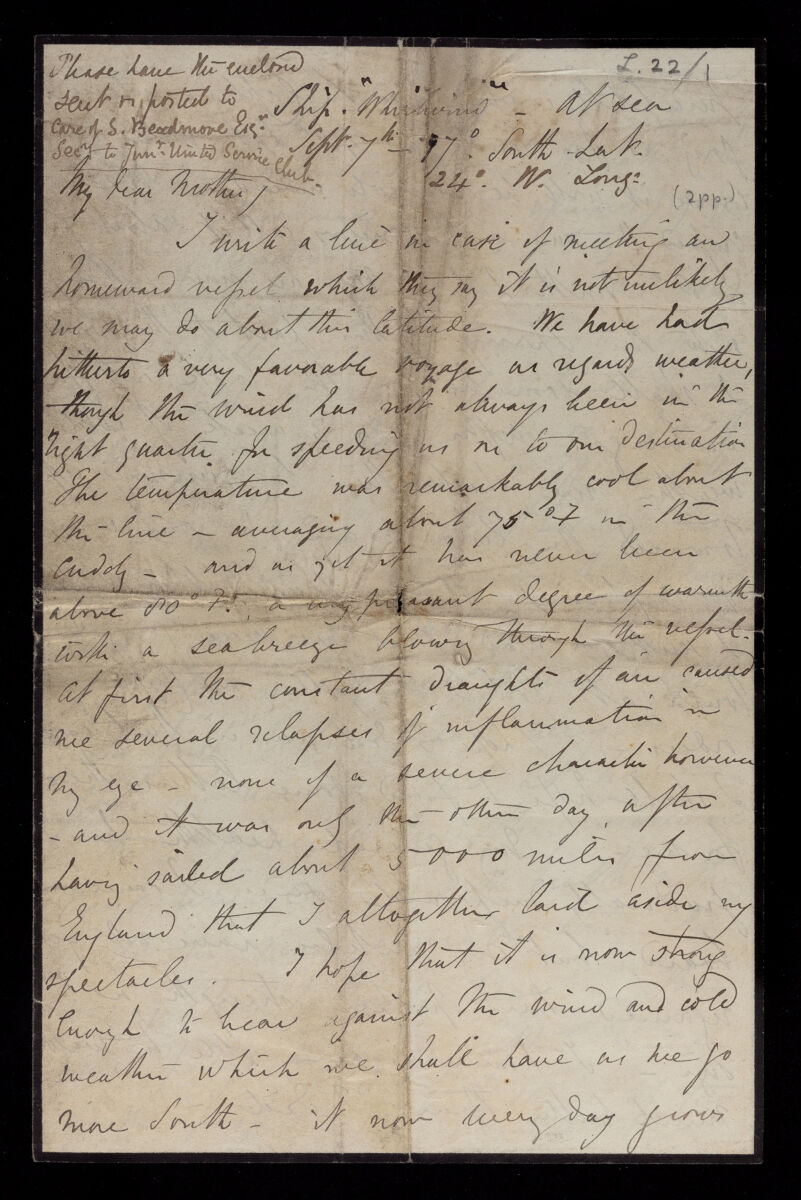 Please have the enclosed
sent or posted to
care of S. Beadsmore Esqr
Secy to Junr United Service
Club.
L. 22/1
Ship "Whirlwind" – At sea
Sept. 7th – 17° South Lat.
24° W. Long:
(2pp.)
My dear Mother,
I write a line in case of meeting an
homeward vessel which they say it is not unlikely
we may do about this latitude. We have had
hitherto a very favorable voyage as regards weather,
though the wind has not always been in the
right quarter for speeding us on to our destination
The temperature was remarkably cool about
the line – averaging about 75° F in the
cuddy – and as yet it has never been
above 80° F., a very pleasant degree of warmth
with a sea breeze blowing through the vessel.
At first the constant draughts of air caused
me several relapses of inflammation in
my eye – none of a severe character however
– and it was only the other day, after
having sailed about 5000 miles from
England that I altogether laid aside my
spectacles. I hope that it is now strong
enough to bear against the wind and cold
weather which we shall have as we go
more South – it now every day grows